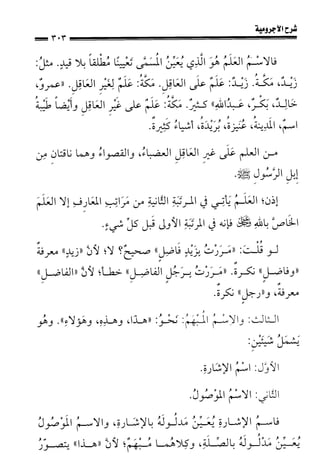 شرح الآجرومية
٣٠٣
فالاسْمُ العَلَمُ هُوَ الَّذِي يُعَيِّنُ المُسَمَّى تَعْيِينًا مُطْلَقًا بلا قيدٍ. مثلُ:
زَيْدٌ، مَكَّةُ. زَيْدٌ: عَلَمٌ عَلَى العَاقِلِ. مَكَّةُ: عَلَمٌ لِغَيرِ العَاقِلِ. «عمرو،
خَالِدٌ، بَكْرٌ، عَبدُاللهِ» كثيرٌ. مَكَّةُ: عَلَمٌ عَلَى غَيْرِ العَاقِلِ وأيْضاً طَيْبَةُ
اسم، المَدِينَةُ، عُنَيْزَةُ، بُرَيْدَةُ، أشياءُ كَثِيرَةٌ.
مـن العلم عَلَى غيرِ العاقلِ العضباءُ، والقصواءُ وهما ناقتان مِن
إبلِ الرَّسُولِ ﷺ.
إذن؛ العَلَـمُ يَأتِي في المرتَبَةِ الثَّانِيةِ من مَرَاتِبِ المعَارِفِ إلا العَلَمَ
الخَاصَّ باللهِ ﷻ فإنه في المَرْتبَةِ الأولى قَبلَ كلِّ شيءٍ.
لـو قُلْتَ: «مَرَرْتُ بِزَيْدٍ فَاضِلٍ» صحيحٌ؟ لا؛ لأنَّ «زيدٍ» معرفةٌ
«وفاضل» نكرةٌ. «مَرَرْتُ بِرَجُلٍ الفاضِلِ» خطأ؛ لأنَّ «الفاضل»
معرفةٌ، و«رجلٍ» نكرةٌ.
الثالث: والاسمُ المُبْهَمُ: نَحْوُ: «هـذا، وهذِهِ، وهَؤلاءِ». وهُو
يَشمَلُ شَيئَيْنِ:
الأوَّلُ: اسْمُ الإشَارةِ.
الثَّانِي: الاسْمُ المَوْصُولُ.
فاسـم الإشارةِ يُعَيِّنُ مَدلُولَهُ بالإشارَةِ، والاسم المَوْصُولُ
يُعَيِّنُ مَدْلُولَهُ بالصِّلَةِ، وكِلاهُمَا مُبْهَمٌ؛ لأنَّ «هذا» يتصوّرُ